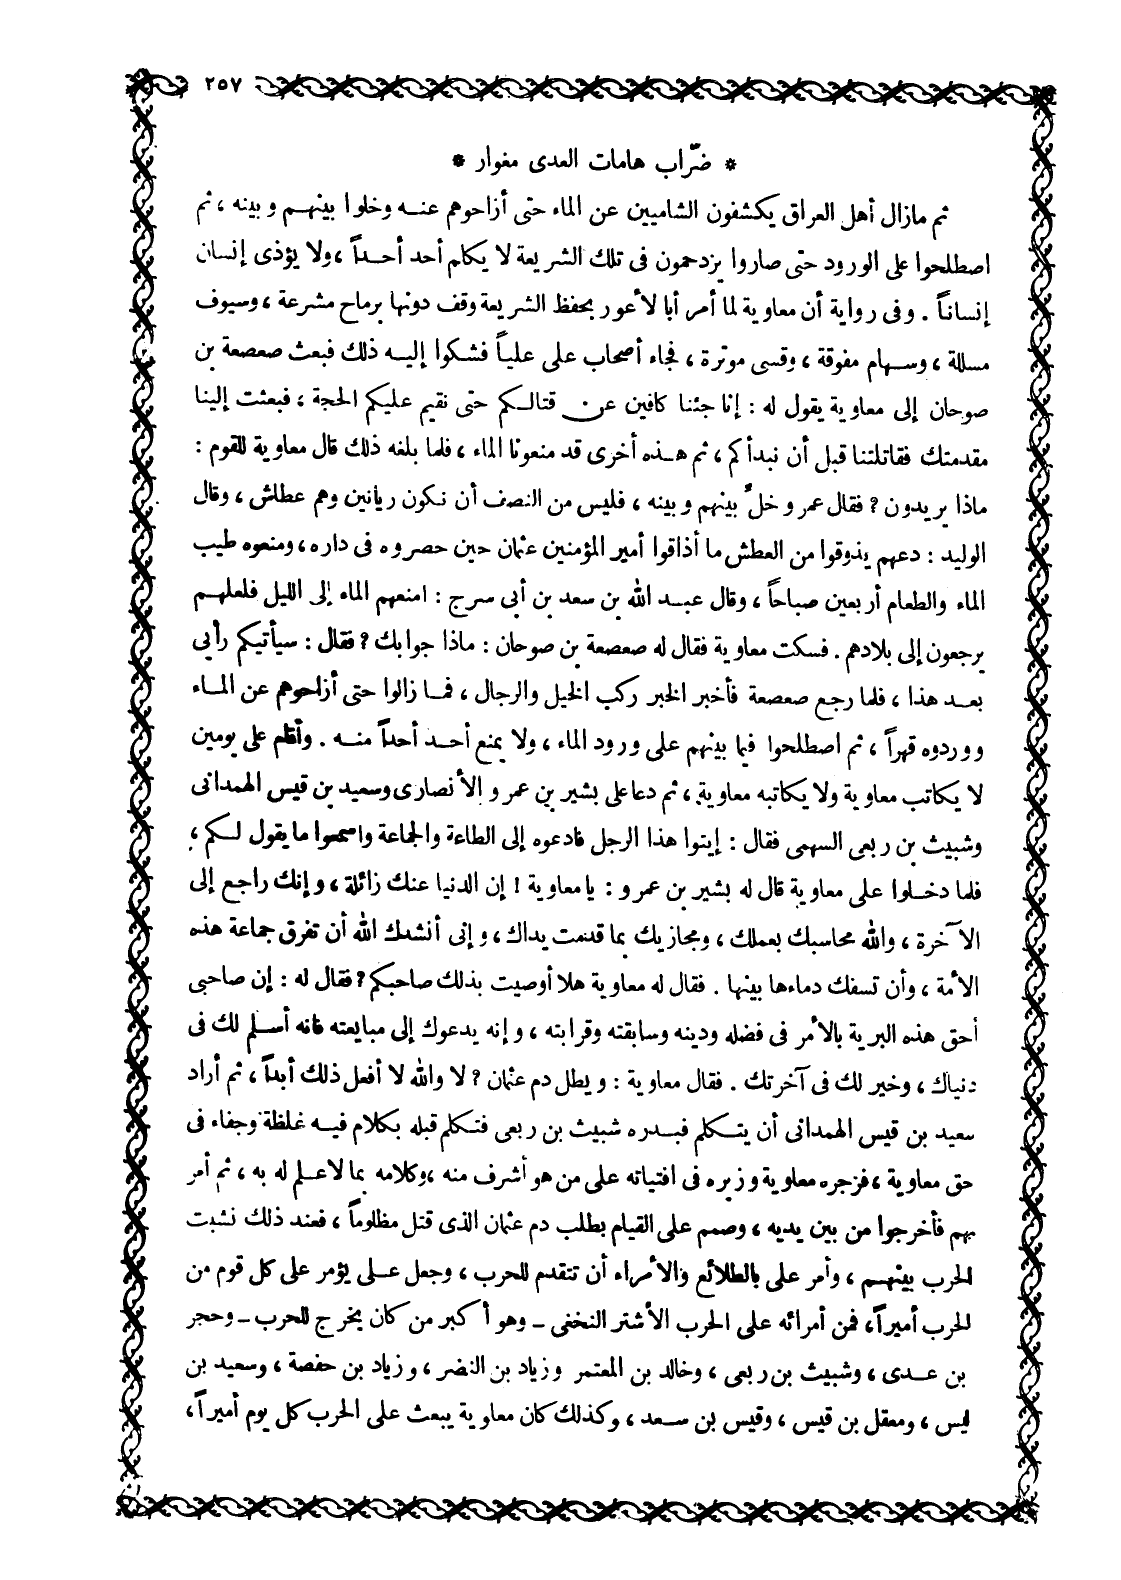 ٢٥٧
* ضرّاب هامات العدى مغوار *
ثم مازال أهل العراق يكشفون الشاميين عن الماء حتى أزاحوهم عنه وخلوا بينهم وبينه ، ثم
اصطلحوا على الورود حتى صاروا يزدحمون فى تلك الشريعة لا يكلم أحد أحداً ، ولا يؤذى إنسان
إنساناً . وفى رواية أن معاوية لما أمر أبا لأعور بحفظ الشريعة وقف دونها برماح مشرعة ، وسيوف
مسللة ، وسهام مفوقة ، وقسى موترة ، فجاء أصحاب على علياً فشكوا إليه ذلك فبعث صعصعة بن
صوحان إلى معاوية يقول له : إنا جئنا كافين عن قتالكم حتى نقيم عليكم الحجة ، فبعثت إلينا
مقدمتك فقاتلتنا قبل أن نبدأكم ، ثم هذه أخرى قد منعونا الماء ، فلما بلغه ذلك قال معاوية للقوم :
ماذا يريدون ? فقال عمرو خلّ بينهم وبينه ، فليس من النصف أن نكون ريانين وهم عطاش ، وقال
الوليد : دعهم يذوقوا من العطش ما أذاقوا أمير المؤمنين عثمان حين حصروه فى داره ، ومنعوه طيب
الماء والطعام أربعين صباحاً ، وقال عبد الله بن سعد بن أبى سرح : امنعهم الماء إلى الليل فلعلهم
يرجعون إلى بلادهم . فسكت معاوية فقال له صعصعة بن صوحان : ماذا جوابك ? فقال : سيأتيكم رأيى
بعد هذا ، فلما رجع صعصعة فأخبر الخبر ركب الخيل والرجال ، فما زالوا حتى أزاحوهم عن الماء
ووردوه قهراً ، ثم اصطلحوا فيما بينهم على ورود الماء ، ولا يمنع أحد أحداً منه . وأقام على يومين
لا يكاتب معاوية ولا يكاتبه معاوية ، ثم دعا على بشير بن عمرو الأنصارى وسعيد بن قيس الهمدانى
وشبيث بن ربعى السهمى فقال : إيتوا هذا الرجل فادعوه إلى الطاعة والجماعة واسمعوا ما يقول لكم ،
فلما دخلوا على معاوية قال له بشير بن عمرو : يا معاوية ! إن الدنيا عنك زائلة ، وإنك راجع إلى
الآخرة ، والله محاسبك بعملك ، ومجازيك بما قدمت يداك ، وإنى أنشدك الله أن تفرق جماعة هذه
الأمة ، وأن تسفك دماءها بينها . فقال له معاوية هلا أوصيت بذلك صاحبكم ? فقال له : إن صاحبى
أحق هذه البرية بالأمر فى فضله ودينه وسابقته وقرابته ، وإنه يدعوك إلى مبايعته فانه أسلم لك فى
دنياك ، وخير لك فى آخرتك . فقال معاوية : ويطل دم عثمان ? لا والله لا أفعل ذلك أبداً ، ثم أراد
سعيد بن قيس الهمدانى أن يتكلم فبدره شبيث بن ربعى فتكلم قبله بكلام فيه غلظة وجفاء فى
حق معاوية ، فزجره معاوية وزبره فى افتياته على من هو أشرف منه ، وكلامه بما لا علم له به ، ثم أمر
بهم فأخرجوا من بين يديه ، وصمم على القيام بطلب دم عثمان الذى قتل مظلوماً ، فعند ذلك نشبت
الحرب بينهم ، وأمر على بالطلائع والأمراء أن تتقدم للحرب ، وجعل على يؤمر على كل قوم من
الحرب أميراً ، فمن أمرائه على الحرب الأشتر النخفى - وهو أكبر من كان يخرج للحرب - وحجر
بن عدى ، وشبيث بن ربعى ، وخالد بن المعتمر وزياد بن النضر ، وزياد بن حفصة ، وسعيد بن
قيس ، ومعقل بن قيس ، وقيس بن سعد ، وكذلك كان معاوية يبعث على الحرب كل يوم أميراً ،